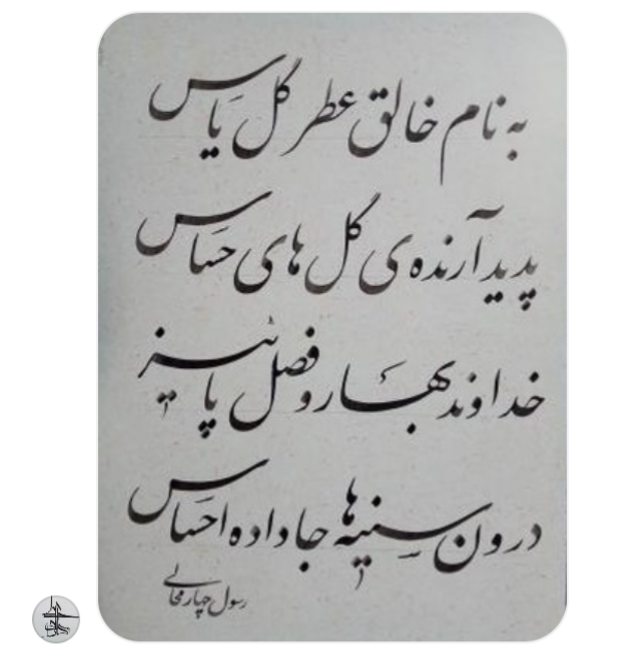 به نام خالق عطر گل یاس
پدید آرنده ی گل های حساس
خداوند بهار و فصل پائیز
درون سینه ها جا داده احساس
رسول